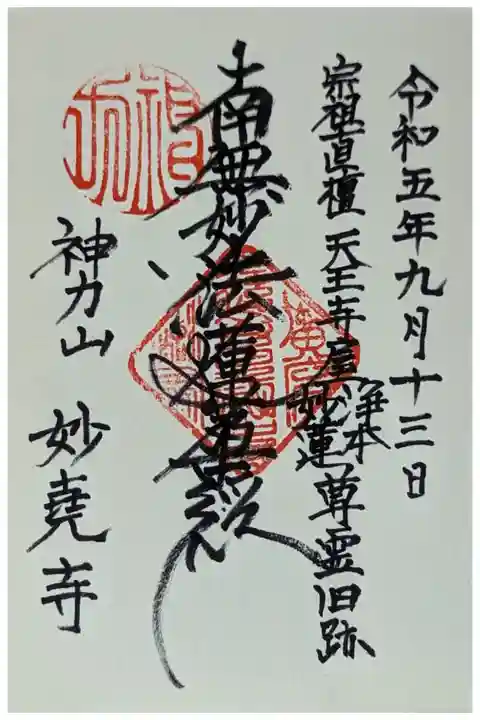 令和五年九月十三日
宗祖直檀 天王寺屋浄本妙蓮尊霊旧跡
南無妙法蓮華経
神力山 妙堯寺